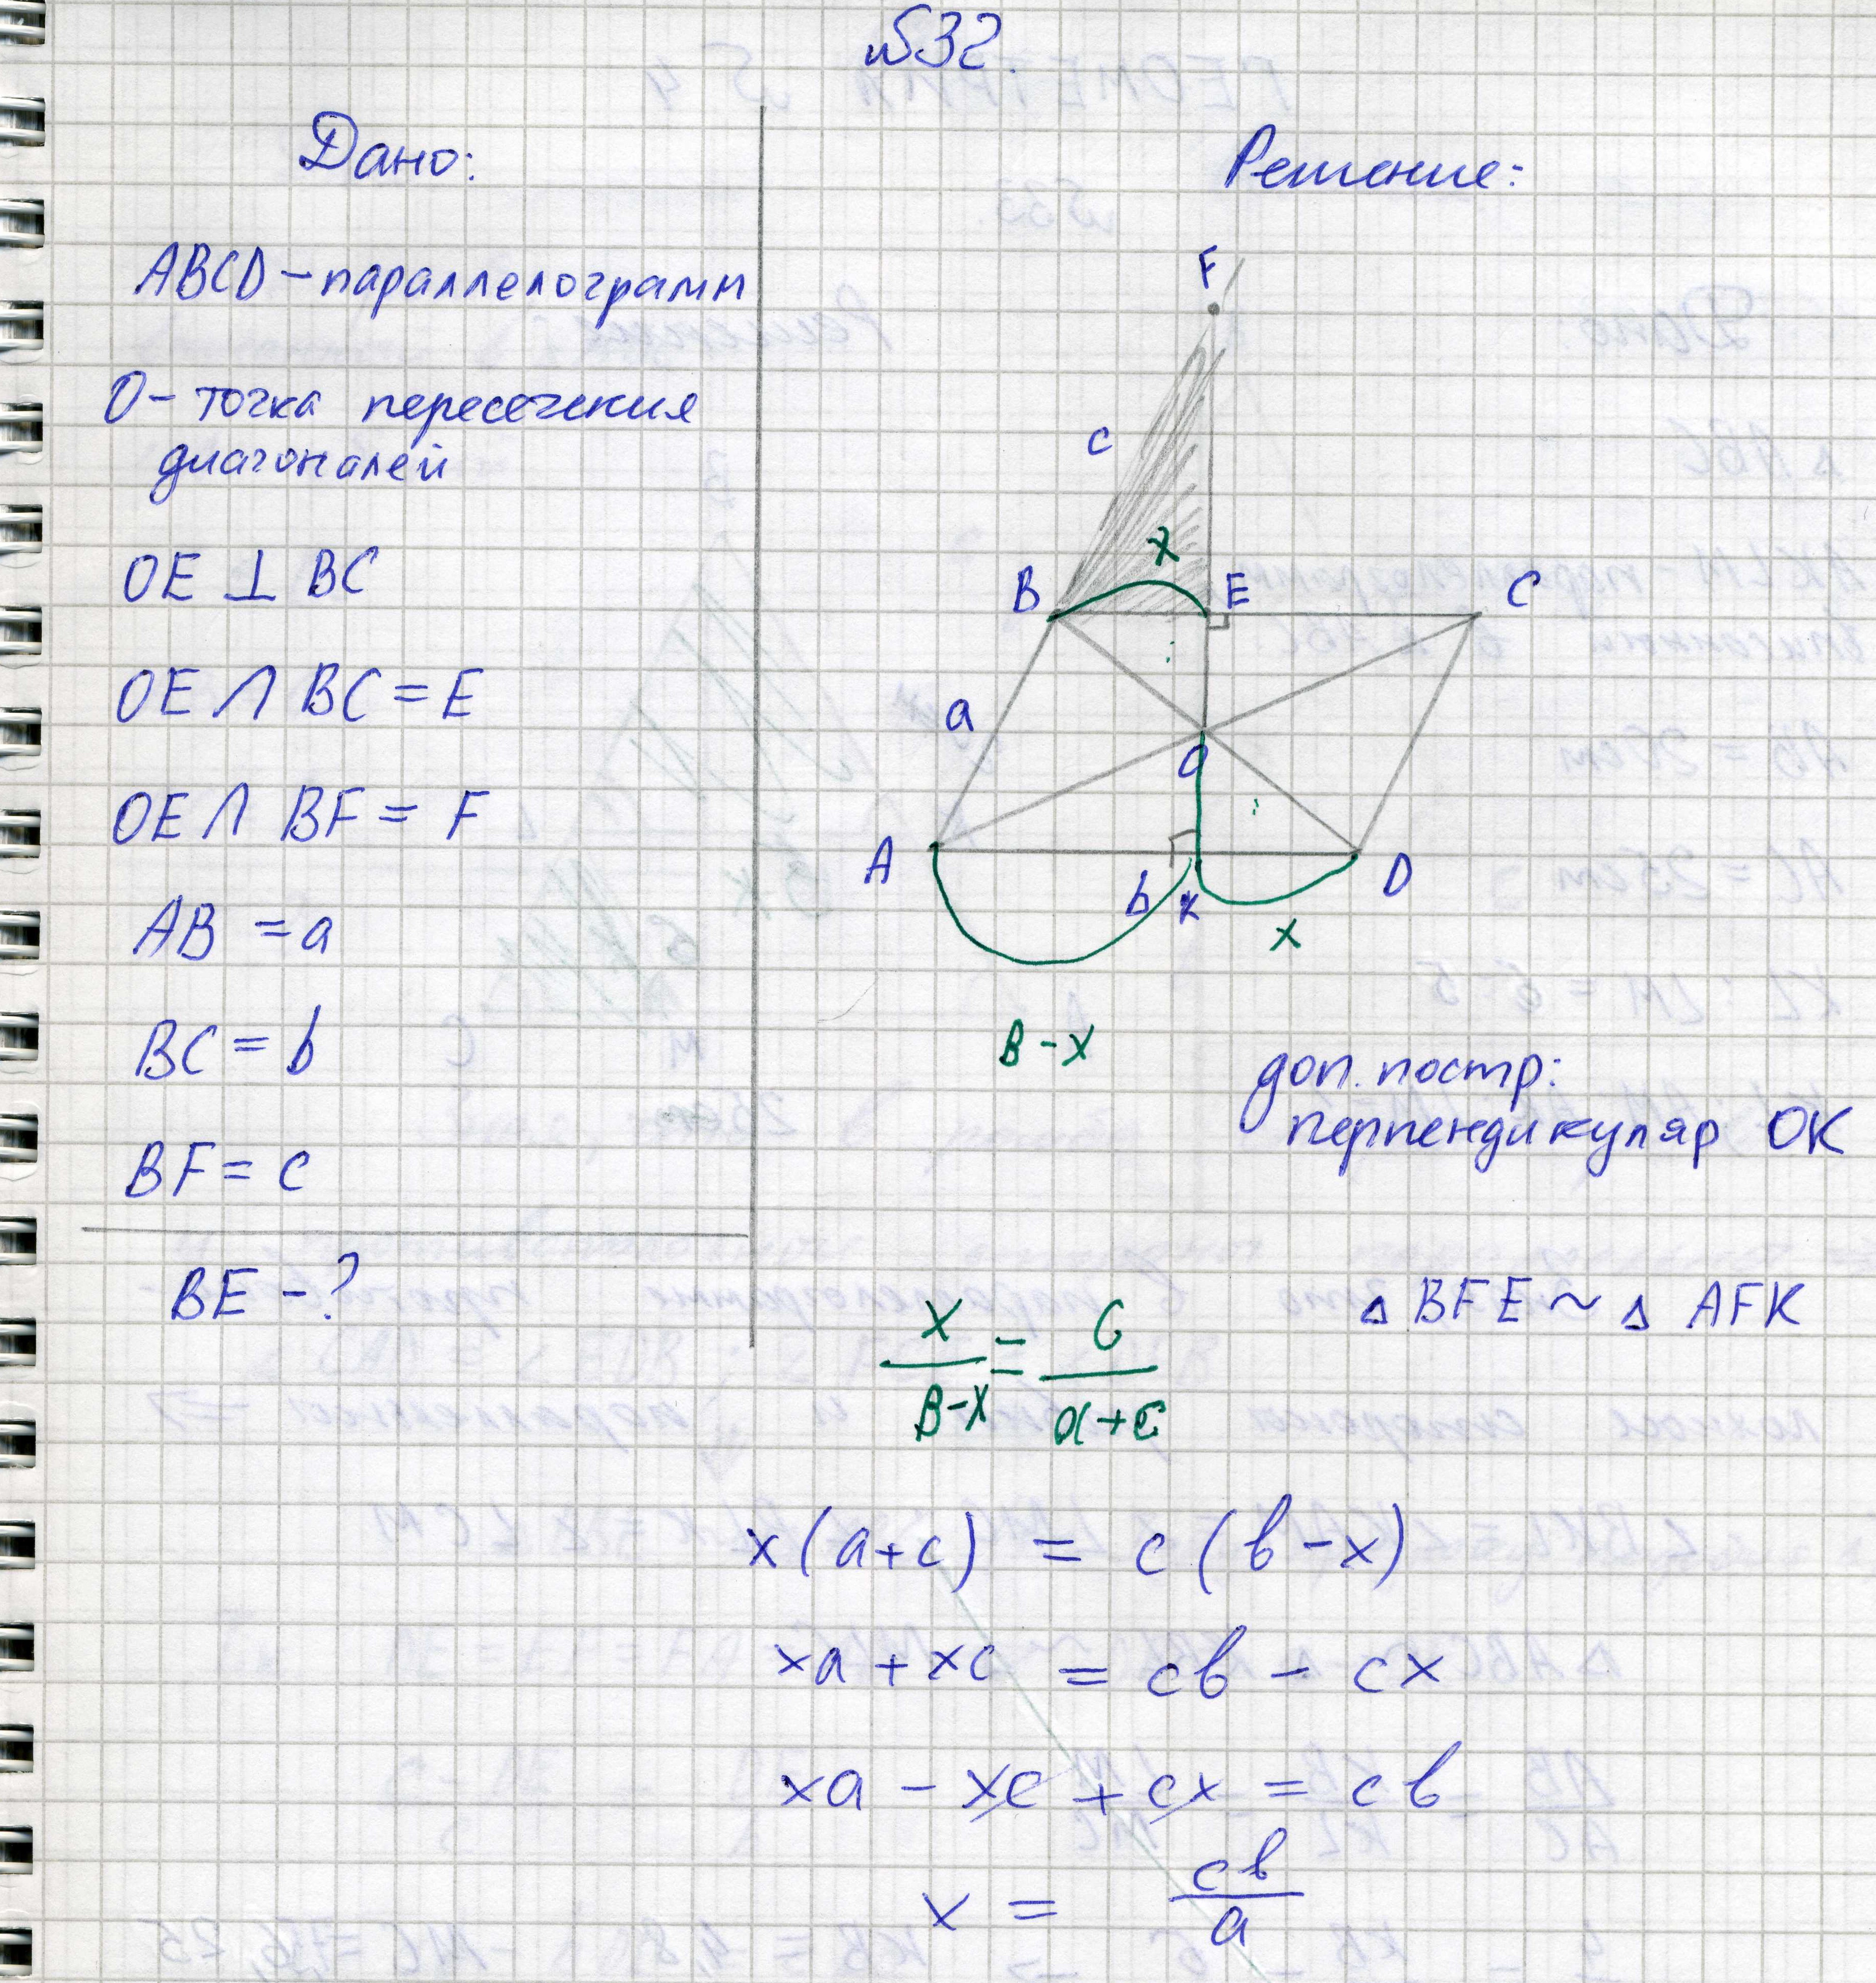 №32.
Дано:
ABCD – параллелограмм
O – точка пересечения
диагоналей
OE ⊥ BC
OE ∩ BC = E
OE ∩ BF = F
AB = a
BC = b
BF = c
BE – ?
Решение:
F
c
x
B
E
C
a
O
A
b
K
D
x
B-x
доп. постр:
перпендикуляр OK
△ BFE ~ △ AFK
x/B-x = c/a+c
x(a+c) = c(в-x)
xa + xc = cв - cx
xa - xc + cx = cв
x = cв/a